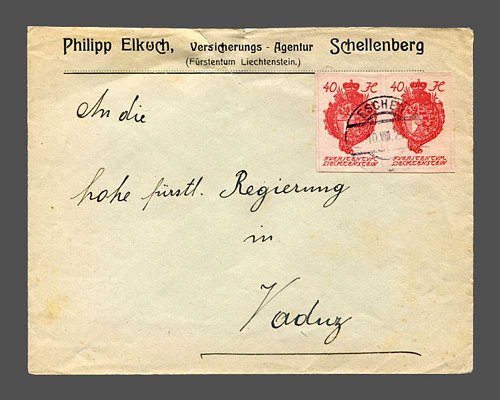 Philipp Elkuch, Versicherungs - Agentur Schellenberg
(Fürstentum Liechtenstein.)
40 H 40 H
ESCHEN
10. VIII.
FUERSTENTUM LIECHTENSTEIN FUERSTENTUM LIECHTENSTEIN
An die
hohe fürstl. Regierung
in
Vaduz